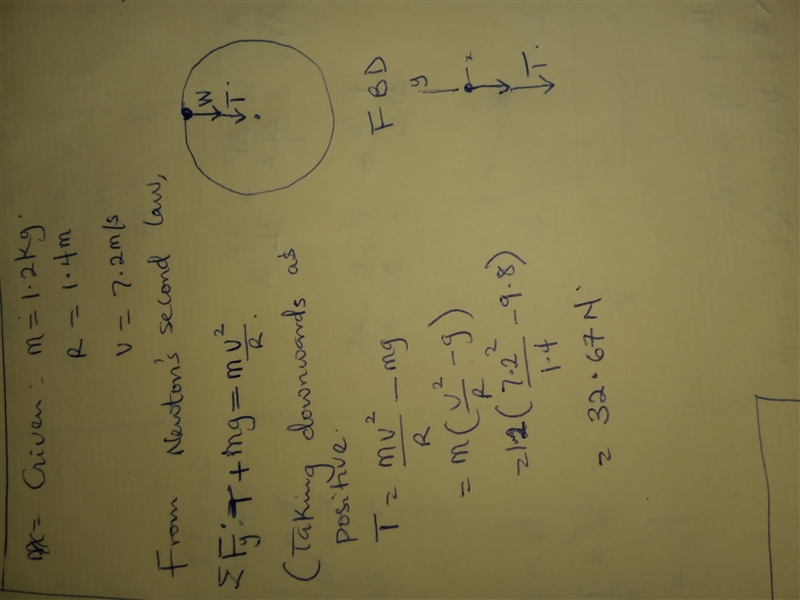 Given: m = 1.2kg.
R = 1.4m
v = 7.2m/s
From Newton's second law,
ΣFy: T + mg = mv²/R.
(Taking downwards as
positive.
T = mv²/R - mg
= m(v²/R - g)
= 1.2(7.2²/1.4 - 9.8)
= 32.67 N.
W
T.
FBD
y
x
T.